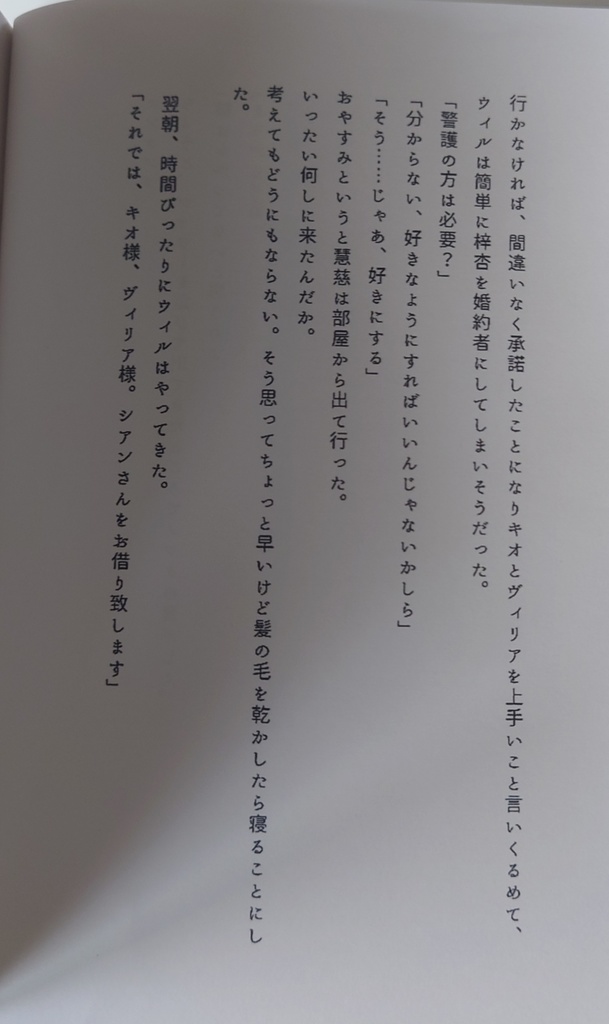 行かなければ、間違いなく承諾したことになりキオとヴィリアを上手いこと言いくるめて、
ウィルは簡単に梓杏を婚約者にしてしまいそうだった。
「警護の方は必要？」
「分からない、好きなようにすればいいんじゃないかしら」
「そう……じゃあ、好きにする」
おやすみというと慧慈は部屋から出て行った。
いったい何しに来たんだか。
考えてもどうにもならない。そう思ってちょっと早いけど髪の毛を乾かしたら寝ることにし
た。
翌朝、時間ぴったりにウィルはやってきた。
「それでは、キオ様、ヴィリア様。シアンさんをお借り致します」